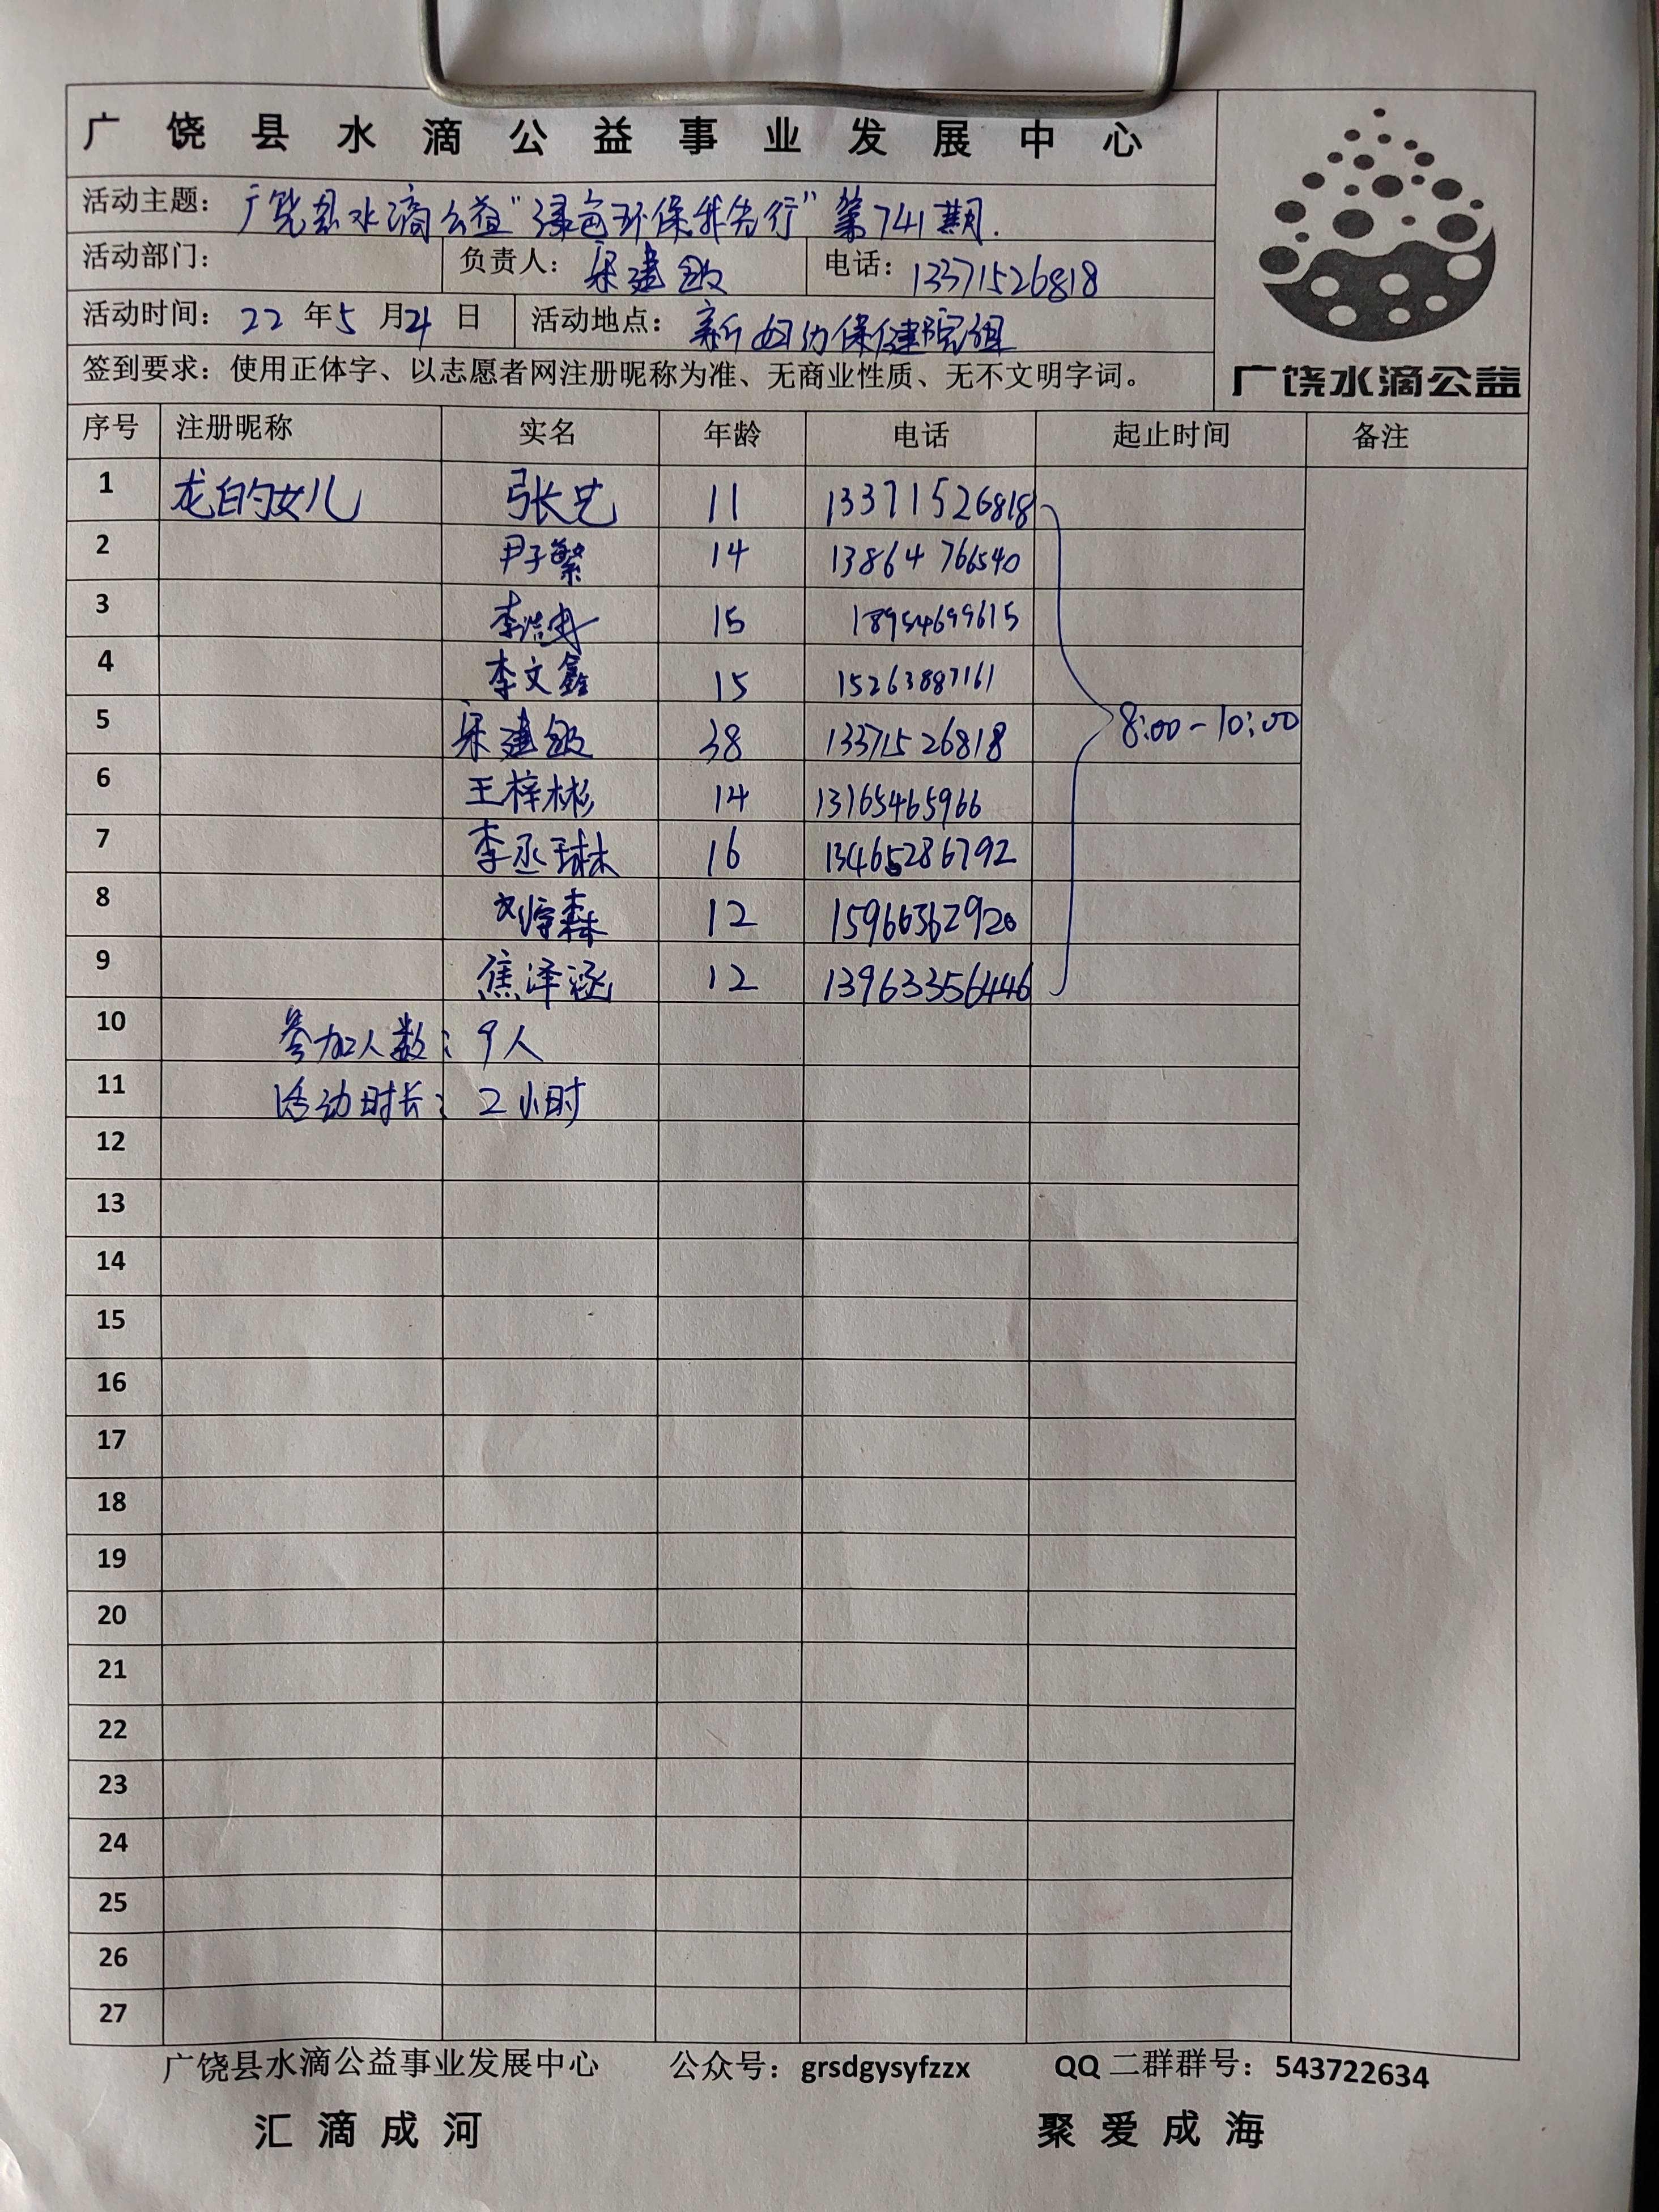 广饶县水滴公益事业发展中心
活动主题: 广饶县水滴公益“绿色环保我先行”第741期.
活动部门: 负责人: 宋建敏 电话: 13371526818
活动时间: 22 年 5 月 21 日 活动地点: 新妇幼保健院组
签到要求: 使用正体字、以志愿者网注册昵称为准、无商业性质、无不文明字词。
广饶水滴公益
序号 注册昵称 实名 年龄 电话 起止时间 备注
1 龙的女儿 张艺 11 13371526818
2 尹子繁 14 13864766540
3 李浩 15 18954699615
4 李文鑫 15 15263887161
5 宋建敏 38 13371526818 8:00-10:00
6 王梓彬 14 13165465966
7 李丞琳 16 13465286792
8 刘淳森 12 15966362920
9 焦泽涵 12 13963356446
10 参加人数: 9人
11 活动时长: 2小时
12
13
14
15
16
17
18
19
20
21
22
23
24
25
26
27
广饶县水滴公益事业发展中心 公众号: grsdgysyfzzx QQ 二群群号: 543722634
汇滴成河 聚爱成海